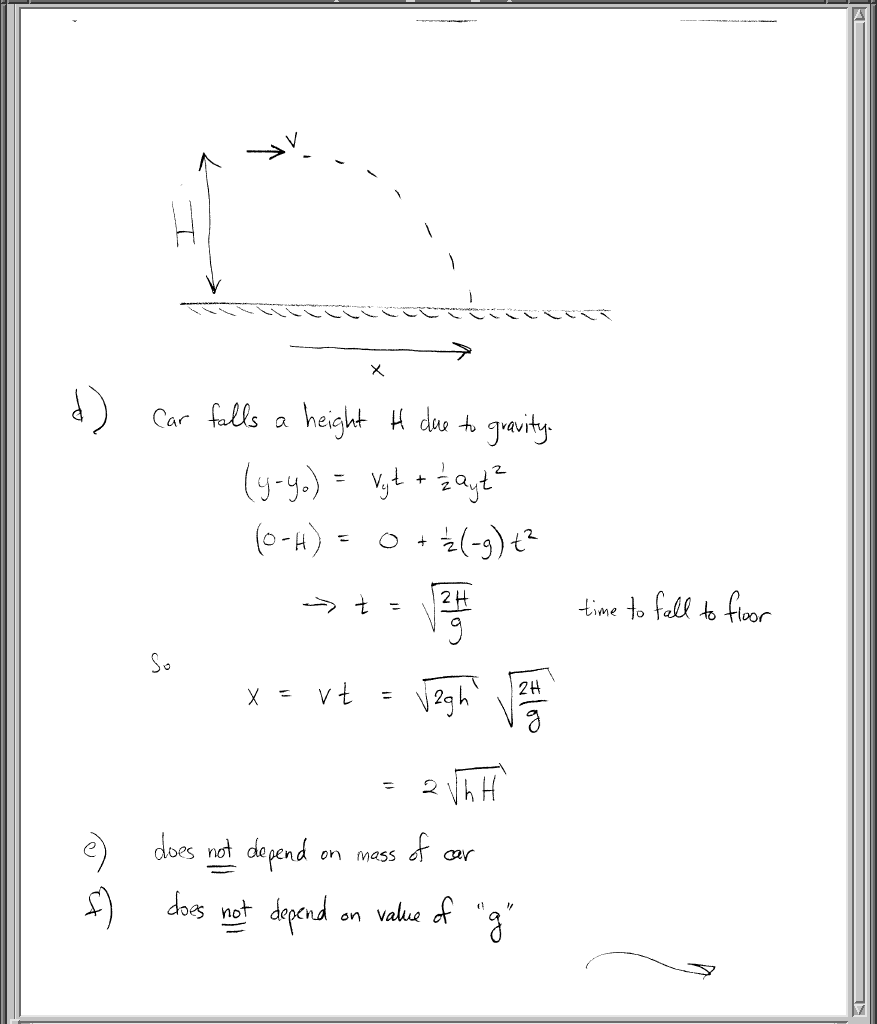 v
H
x
d) Car falls a height H due to gravity.
(y-y₀) = v_y t + ½ a_y t²
(0-H) = 0 + ½(-g) t²
→ t = √(2H/g) time to fall to floor
So
x = vt = √(2gh) √(2H/g)
= 2√(hH)
e) does not depend on mass of car
f) does not depend on value of "g"